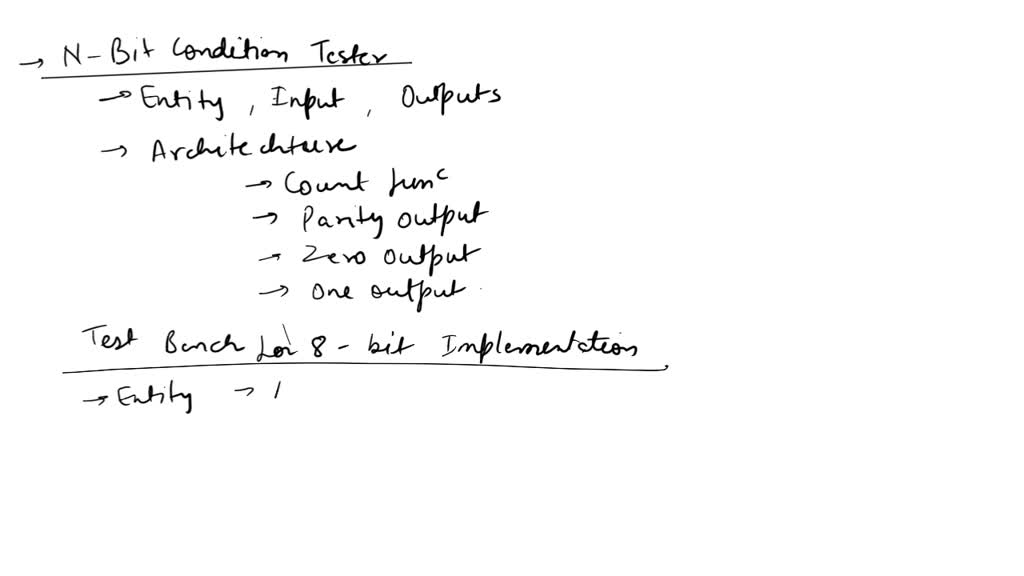 → N-Bit Condition Tester
→ Entity, Input, Outputs
→ Architechture
→ Count func
→ Parity output
→ Zero output
→ One output
Test Bench for 8-bit Implementation
→ Entity →